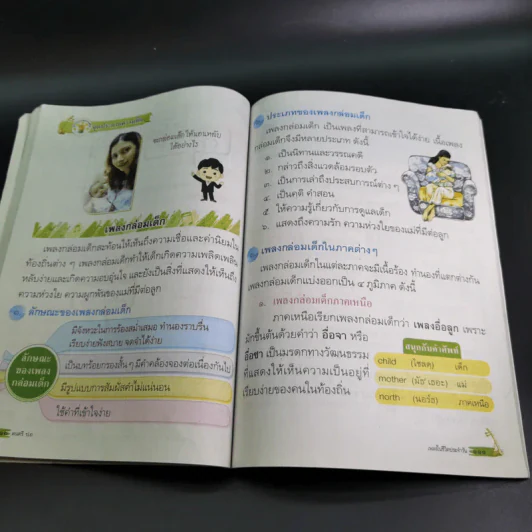 จะกล่อมเด็กให้นอนหลับ
ได้อย่างไร
เพลงกล่อมเด็ก
เพลงกล่อมเด็กสะท้อนให้เห็นถึงความเชื่อและค่านิยมใน
ท้องถิ่นต่าง ๆ เพลงกล่อมเด็กทำให้เด็กเกิดความเพลิดเพลิน
หลับง่ายและเกิดความอบอุ่นใจ และยังเป็นสิ่งที่แสดงให้เห็นถึง
ความห่วงใย ความผูกพันของแม่ที่มีต่อลูก
๑. ลักษณะของเพลงกล่อมเด็ก
ลักษณะ
ของเพลง
กล่อมเด็ก
มีจังหวะในการร้องสม่ำเสมอ ทำนองราบรื่น
เรียบง่ายฟังสบาย จดจำได้ง่าย
เป็นบทร้อยกรองสั้น ๆ มีคำคล้องจองต่อเนื่องกันไป
มีรูปแบบการสัมผัสคำไม่แน่นอน
ใช้คำที่เข้าใจง่าย
ดนตรี ป.๕
ประเภทของเพลงกล่อมเด็ก
เพลงกล่อมเด็ก เป็นเพลงที่สามารถเข้าใจได้ง่าย เนื้อเพลง
กล่อมเด็กจึงมีหลายประเภท ดังนี้
๑. เป็นนิทานและวรรณคดี
๒. กล่าวถึงสิ่งแวดล้อมรอบตัว
๓. เป็นการเล่าถึงประสบการณ์ต่าง ๆ
๔. เป็นคติ คำสอน
๕. ให้ความรู้เกี่ยวกับการดูแลเด็ก
๖. แสดงถึงความรัก ความห่วงใยของแม่ที่มีต่อลูก
เพลงกล่อมเด็กในภาคต่างๆ
เพลงกล่อมเด็กในแต่ละภาคจะมีเนื้อร้อง ทำนองที่แตกต่างกัน
เพลงกล่อมเด็กแบ่งออกเป็น ๔ ภูมิภาค ดังนี้
๑. เพลงกล่อมเด็กภาคเหนือ
ภาคเหนือเรียกเพลงกล่อมเด็กว่า เพลงอื่อลูก เพราะ
มักขึ้นต้นด้วยคำว่า อื่อจา หรือ
อื่อชา เป็นมรดกทางวัฒนธรรม
ที่แสดงให้เห็นความเป็นอยู่ที่
เรียบง่ายของคนในท้องถิ่น
สนุกกับคำศัพท์
child (ไชลด) เด็ก
mother (มัธ เธอะ) แม่
north (นอร์ธ) ภาคเหนือ